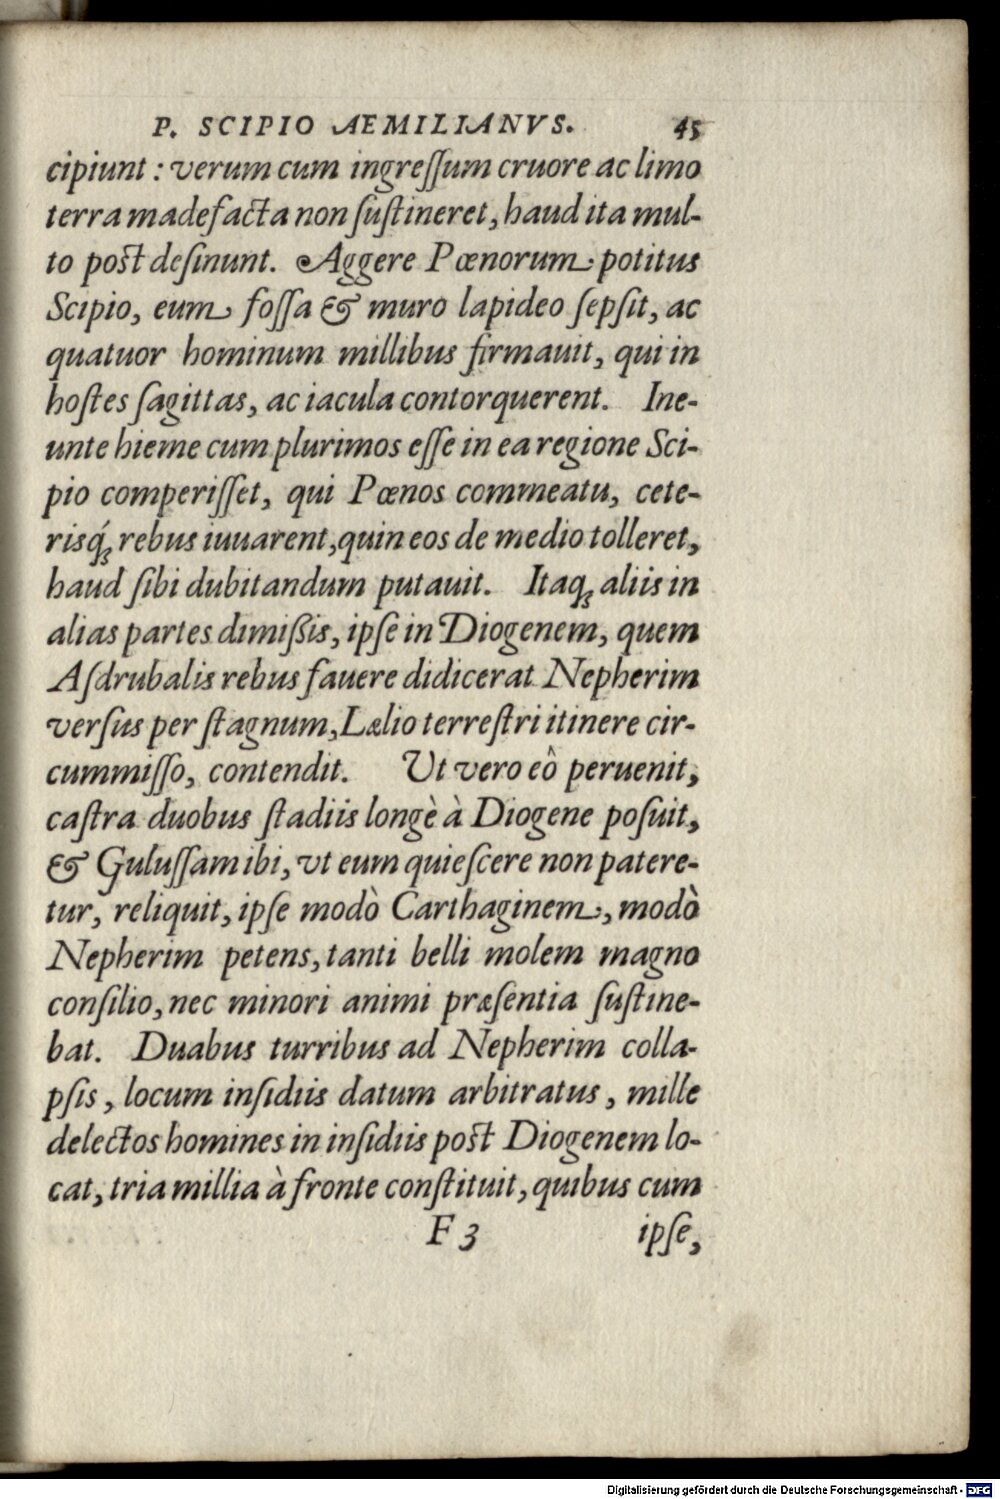 P. SCIPIO AEMILIANVS. 45
cipiunt : verum cum ingreſſum cruore ac limo
terra madefacta non ſuſtineret, haud ita mul-
to poſt deſinunt. Aggere Pœnorum potitus
Scipio, eum foſſa & muro lapideo ſepſit, ac
quatuor hominum millibus firmauit, qui in
hoſtes ſagittas, ac iacula contorquerent. Ine-
unte hieme cum plurimos eſſe in ea regione Sci-
pio comperiſſet, qui Pœnos commeatu, cete-
risq́; rebus iuuarent, quin eos de medio tolleret,
haud ſibi dubitandum putauit. Itaq; aliis in
alias partes dimißis, ipſe in Diogenem, quem
Aſdrubalis rebus fauere didicerat Nepherim
verſus per ſtagnum, Lælio terreſtri itinere cir-
cummiſſo, contendit. Ut vero eò peruenit,
caſtra duobus ſtadiis longè à Diogene poſuit,
& Guluſſam ibi, vt eum quieſcere non patere-
tur, reliquit, ipſe modò Carthaginem, modò
Nepherim petens, tanti belli molem magno
conſilio, nec minori animi præſentia ſuſtine-
bat. Duabus turribus ad Nepherim colla-
pſis, locum inſidiis datum arbitratus, mille
delectos homines in inſidiis poſt Diogenem lo-
cat, tria millia à fronte conſtituit, quibus cum
F 3 ipſe,
Digitalisierung gefördert durch die Deutsche Forschungsgemeinschaft - DFG